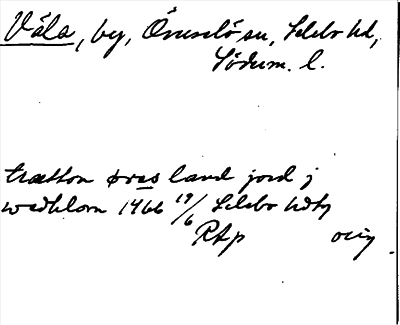 Våla, by, Överselö sn, Selebo hd,
Söderm. l.
trætton øres land jord j
wædhlom 1466 19/6 Selebo hdtg
RAp orig.